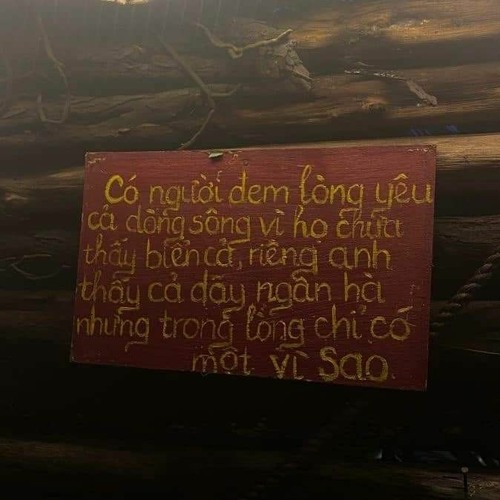 Có người dem lòng yêu
cả dòng sông vì họ chưa
thấy biển cả, riêng anh
thấy cả dãy ngân hà
nhưng trong lòng chỉ có
một vì sao.